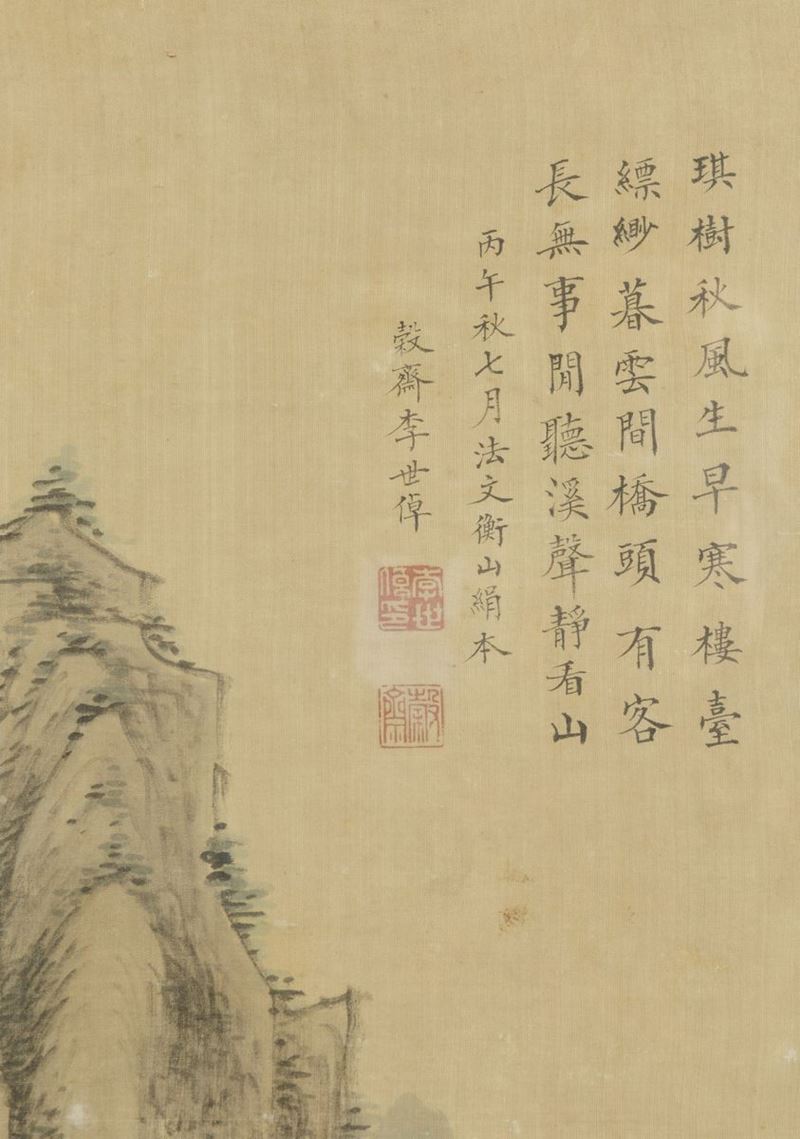 琪樹秋風生早寒樓臺
縹緲暮雲間橋頭有客
長無事閒聽溪聲靜看山
丙午秋七月法文衡山絹本
穀齋李世倬
李世倬印
穀齋